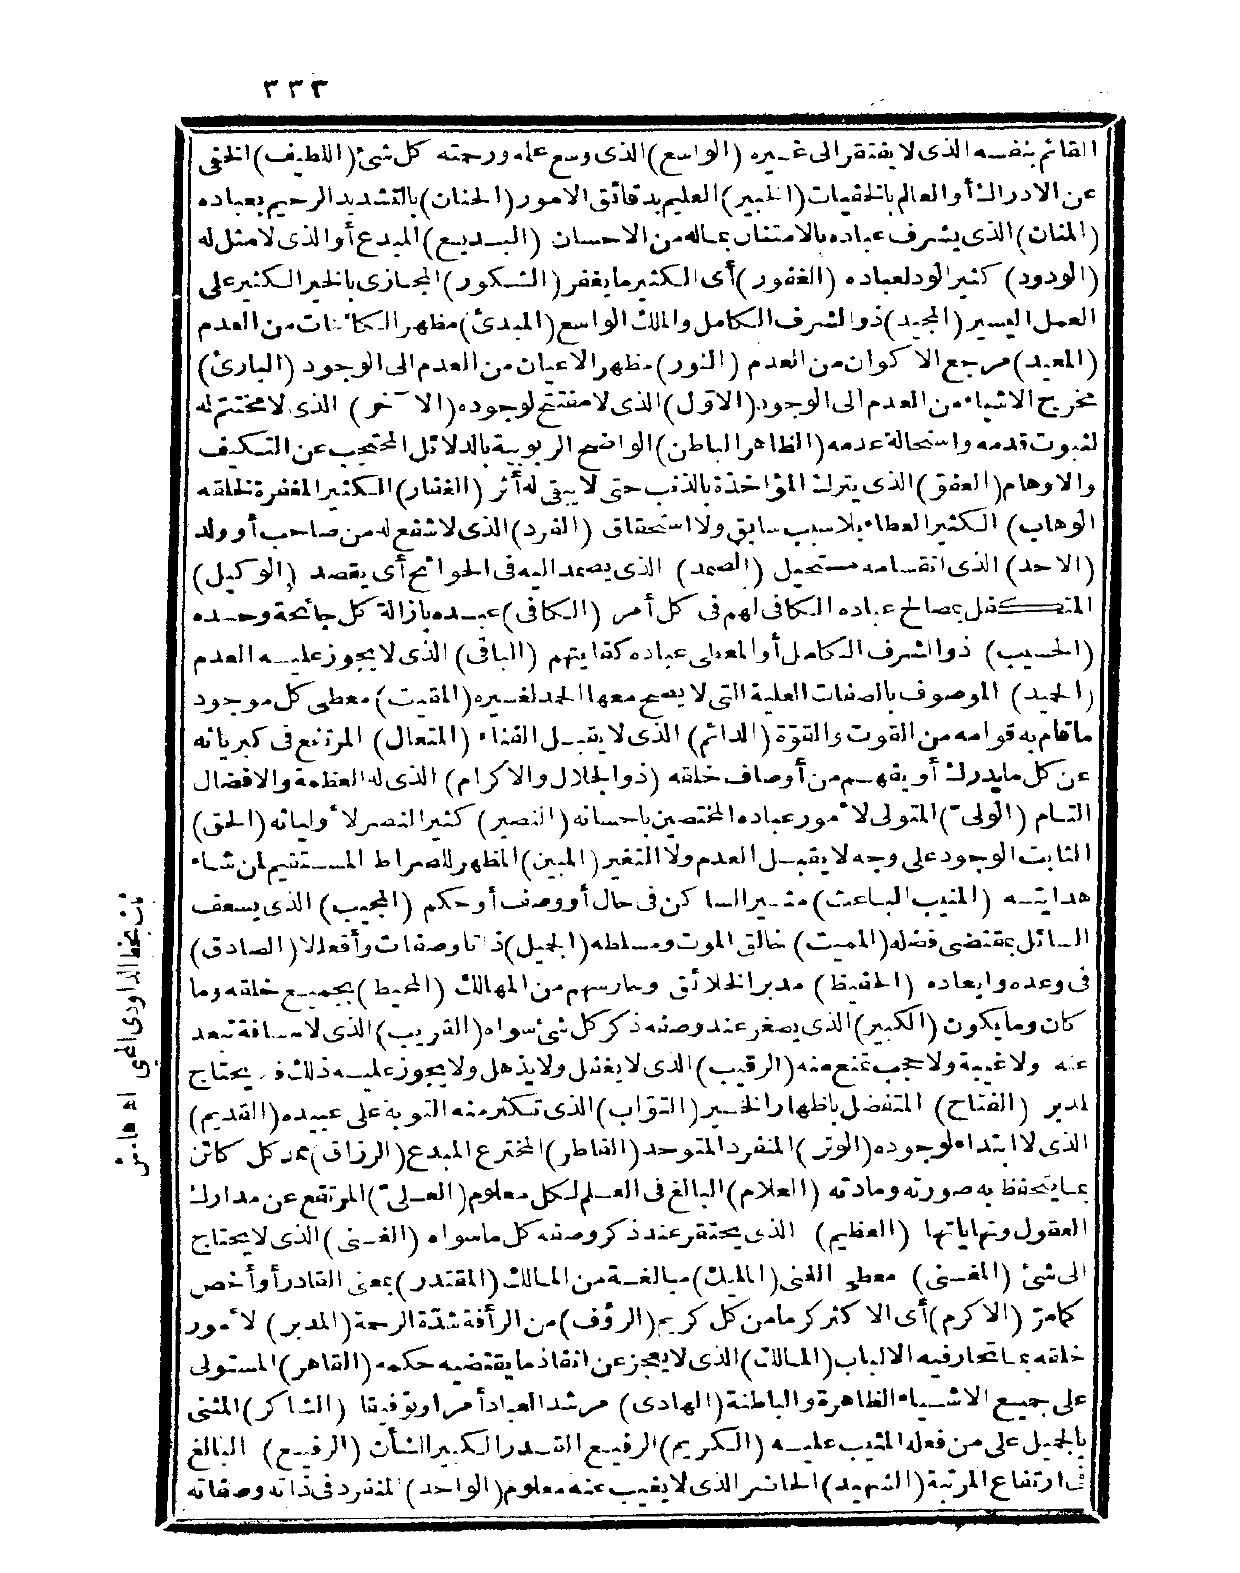 ٣٣٣
القائم بنفسه الذى لا يفتقر الى غيره (الواسع) الذى وسع علمه ورحمته كل شئ (اللطيف) الخفى
عن الادراك أو العالم بالخفيات (الخبير) العليم بدقائق الامور (الحنان) بالتشديد الرحيم بعباده
(المنان) الذى يشرف عباده بالامتنان بماله من الاحسان (البديع) المبدع أو الذى لا مثل له
(الودود) كثير الود لعباده (الغفور) أى الكثير ما يغفر (الشكور) المجازى بالخير الكثير على
العمل اليسير (المجيد) ذو الشرف الكامل والملك الواسع (المبدئ) مظهر الكائنات من العدم
(المعيد) مرجع الاكوان من العدم (النور) مظهر الاعيان من العدم الى الوجود (البارئ)
مخرج الاشياء من العدم الى الوجود (الاوّل) الذى لا مفتتح لوجوده (الا~خر) الذى لا مختتم له
لثبوت قدمه واستحالة عدمه (الظاهر الباطن) الواضح الربوبية بالدلائل المحتجب عن التكيف
والاوهام (العفوّ) الذى يترك المؤاخذة بالذنب حتى لا يبقى له أثر (الغفار) الكثير المغفرة لخلقه
الوهاب) الكثير العطاء بلا سبب سابق ولا استحقاق (الفرد) الذى لا شفع له من صاحب أو ولد
(الاحد) الذى انقسامه مستحيل (الصمد) الذى يصمد اليه فى الحوائج أى يقصد (الوكيل)
المتكفل بمصالح عباده الكافى لهم فى كل أمر (الكافى) عبده بازالة كل جائحة وحده
(الحسيب) ذو الشرف الكامل أو المعطى عباده كفايتهم (الباقى) الذى لا يجوز عليه العدم
(الحميد) الموصوف بالصفات العلية التى لا يصح معها الحمد لغيره (المقيت) معطى كل موجود
ما قام به قوامه من القوت والقوّة (الدائم) الذى لا يقبل الفناء (المتعال) المرتفع فى كبريائه
عن كل ما يدرك أو يفهم من أوصاف خلقه (ذو الجلال والاكرام) الذى له العظمة والافضال
التام (الولىّ) المتولى لأمور عباده المختصين باحسانه (النصير) كثير النصر لأوليائه (الحق)
الثابت الوجود على وجه لا يقبل العدم ولا التغير (المبين) المظهر للصراط المستقيم لمن شاء
هدايته (المنيب الباعث) مثير الساكن فى حال أو وصف أو حكم (المجيب) الذى يسعف
السائل بمقتضى فضله (المميت) خالق الموت ومسلطه (الجميل) ذاتا وصفات وأفعالا (الصادق)
فى وعده وايعاده (الحفيظ) مدبر الخلائق وحارسهم من المهالك (المحيط) بجميع خلقه وما
كان وما يكون (الكبير) الذى يصغر عند وصفه ذكر كل شئ سواه (القريب) الذى لا مسافة تبعد
عنه ولا غيبة ولا حجب تمنع منه (الرقيب) الذى لا يغفل ولا يذهل ولا يجوز عليه ذلك فيحتاج
لمدبر (الفتاح) المتفضل باظهار الخير (التوّاب) الذى تكثر منه التوبة على عبيده (القديم)
الذى لا ابتداء لوجوده (الوتر) المنفرد المتوحد (الفاطر) المخترع المبدع (الرزاق) ممد كل كائن
بما يتحفظ به صورته ومادته (العلام) البالغ فى العلم لكل معلوم (العلىّ) المرتفع عن مدارك
العقول ونهاياتها (العظيم) الذى يحتقر عند ذكر وصفه كل ما سواه (الغنى) الذى لا يحتاج
الى شئ (المغنى) معطى الغنى (المليك) مبالغة من المالك (المقتدر) بمعنى القادر أو أخص
كما مرّ (الاكرم) أى الاكثر كرما من كل كريم (الرؤف) من الرأفة شدّة الرحمة (المدبر) لأمور
خلقه بما تحار فيه الالباب (المالك) الذى لا يعجز عن انفاذ ما يقتضيه حكمه (القاهر) المستولى
على جميع الاشياء الظاهرة والباطنة (الهادى) مرشد العباد أمرا وتوفيقا (الشاكر) المثنى
بالجميل على من فعله المثيب عليه (الكريم) الرفيع القدر الكبير الشأن (الرفيع) البالغ
فى ارتفاع المرتبة (الشهيد) الحاضر الذى لا يغيب عنه معلوم (الواحد) المنفرد فى ذاته وصفاته
بخط الداودى اه هامش